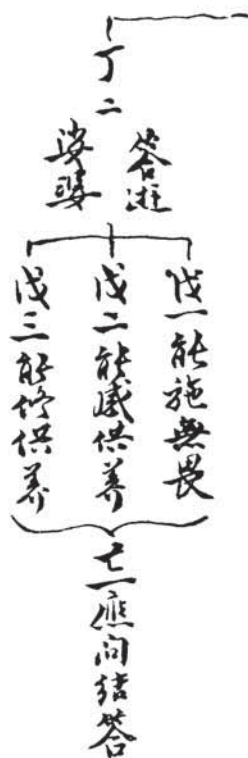 丁二
答遊
娑婆
戊一能施無畏
戊二能感供養
戊三能修供養
七一應問結答